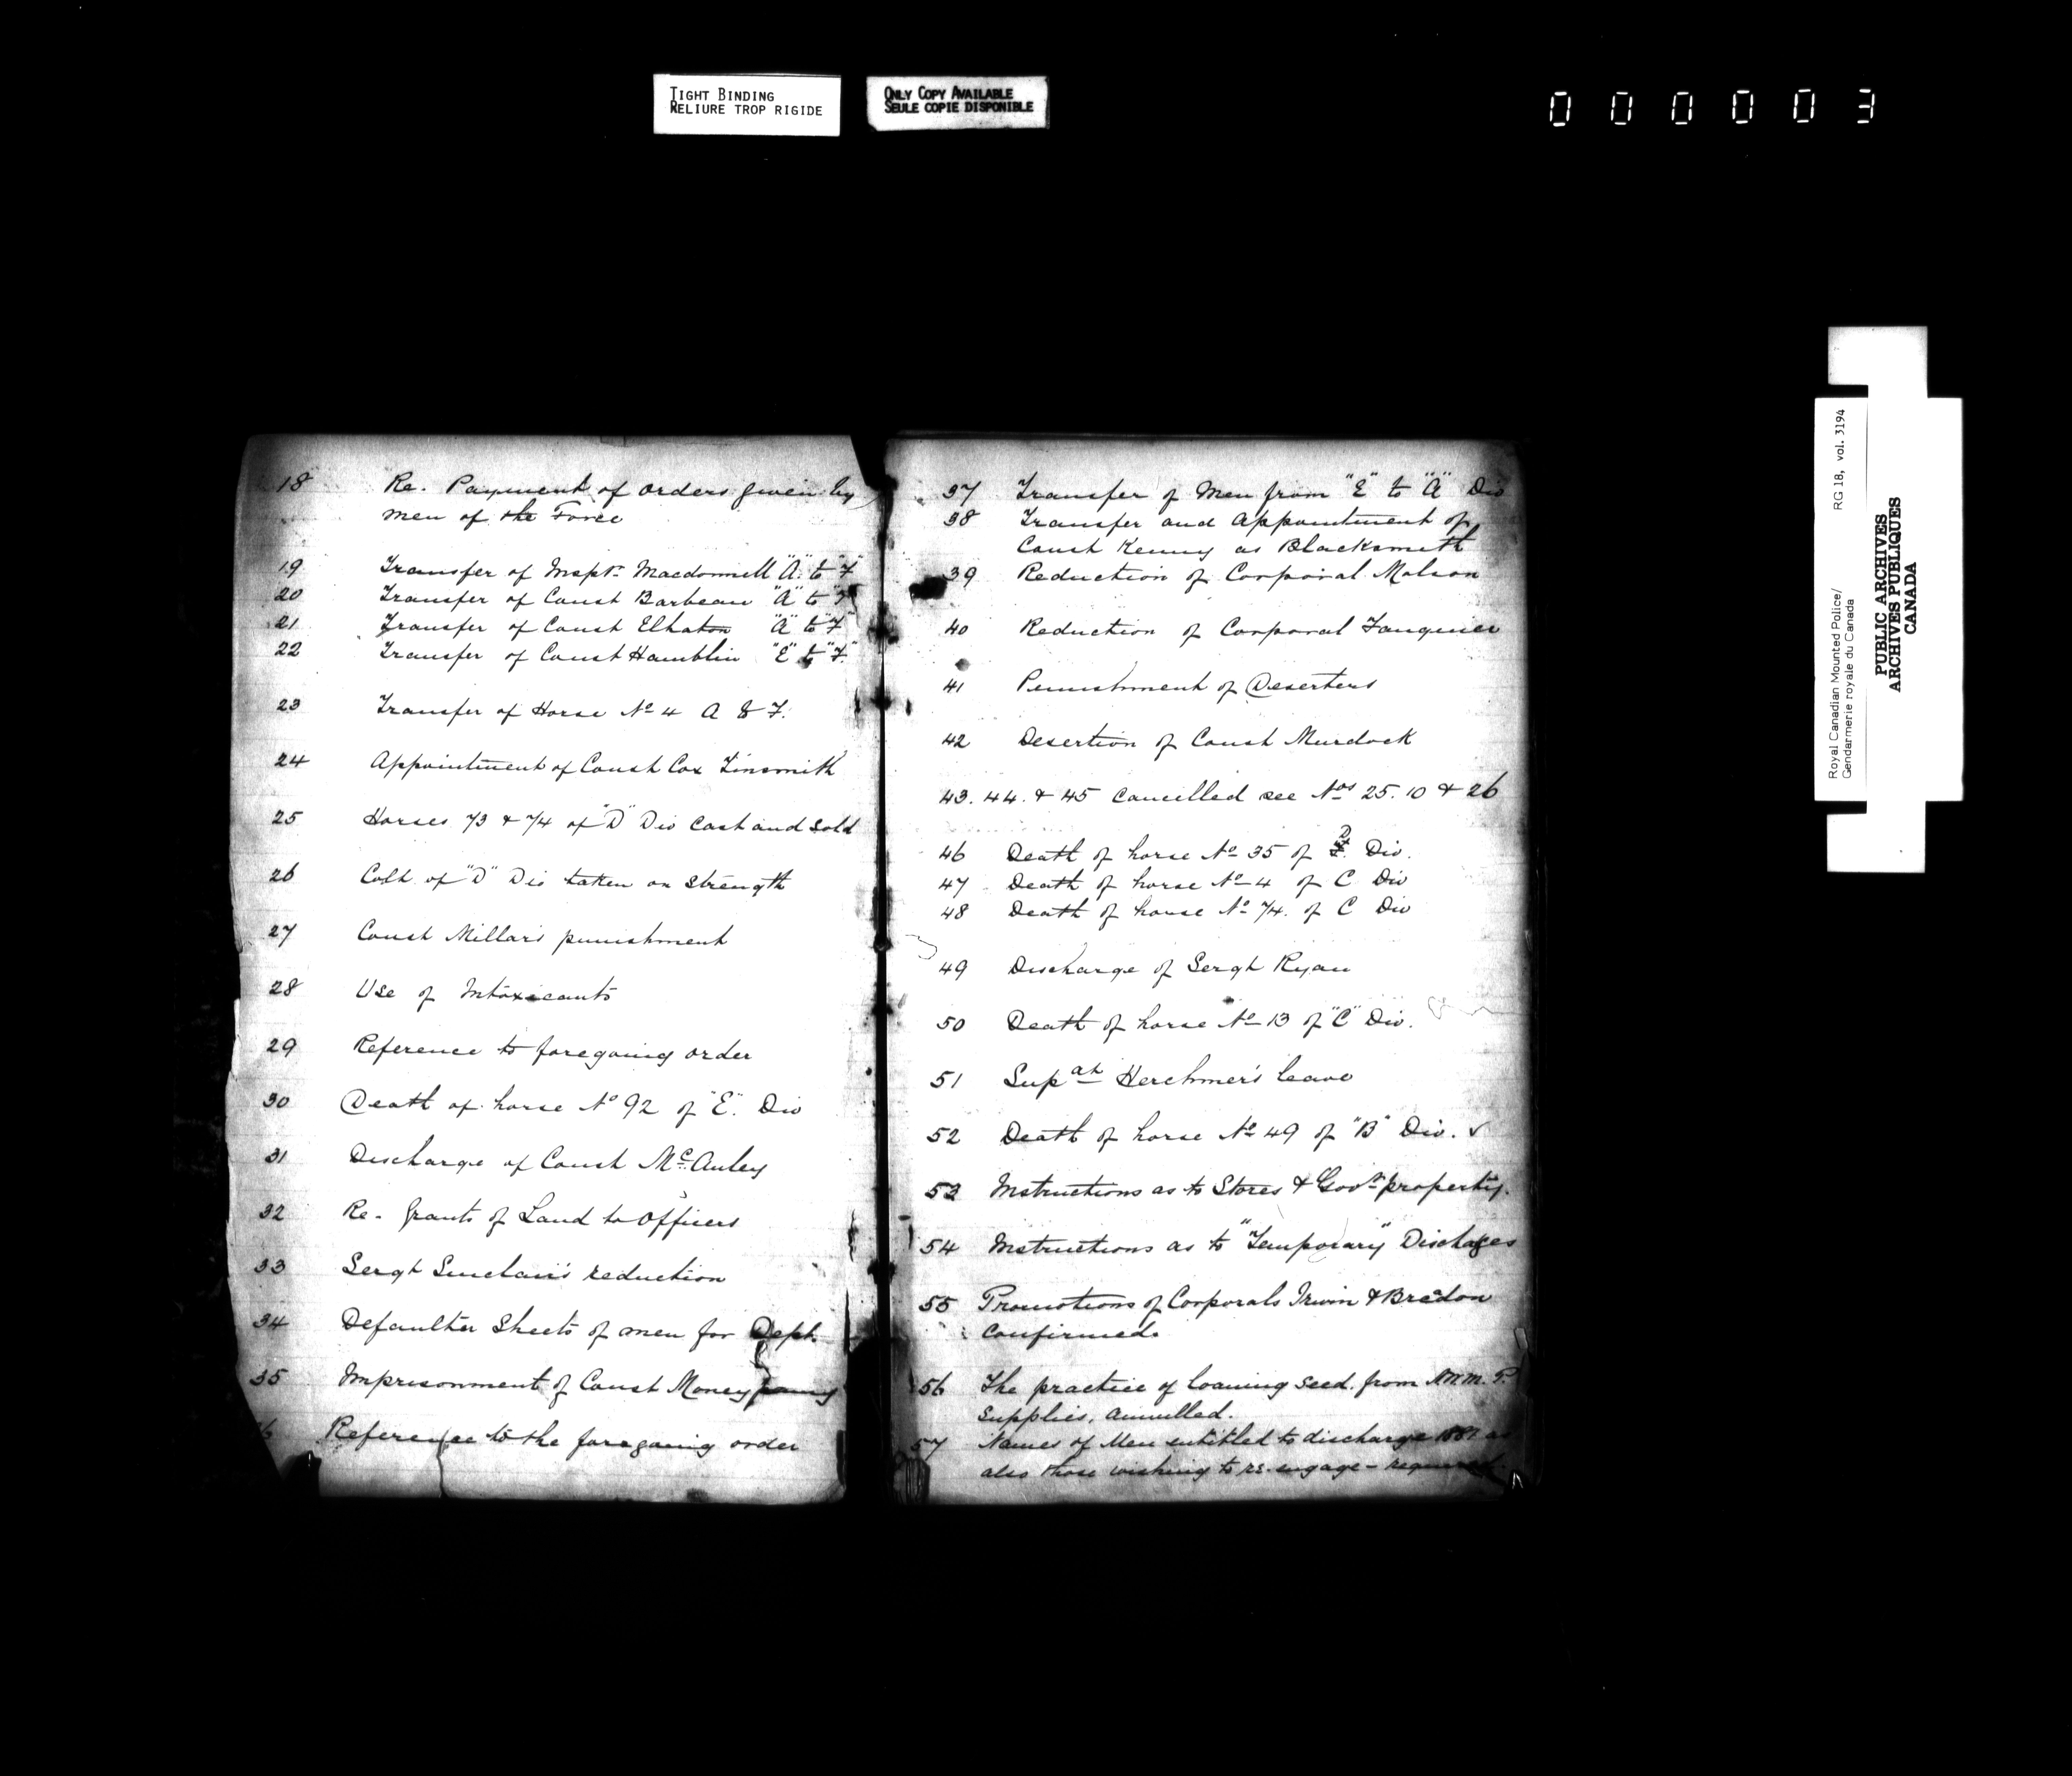 TIGHT BINDING
RELIURE TROP RIGIDE
ONLY COPY AVAILABLE
SEULE COPIE DISPONIBLE
000003
18 Re. Payment of orders given by
men of the Force
19 Transfer of Inspr. Macdonnell "A" to "F"
20 Transfer of Const Barbeau "A" to "F"
21 Transfer of Const Elhaton "A" to "F"
22 Transfer of Const Hamblin "E" to "F"
23 Transfer of Horse No 4 A to F.
24 Appointment of Const Cox Tinsmith
25 Horses 73 & 74 of "D" Div Cast and Sold
26 Colt of "D" Div taken on Strength
27 Const Millar's punishment
28 Use of Intoxicants
29 Reference to foregoing order
30 Death of horse No 92 of "E". Div
31 Discharge of Const McAuley
32 Re. Grants of Land to Officers
33 Sergt Sinclair's reduction
34 Defaulter Sheets of men for Dept.
35 Imprisonment of Const Money
6 Reference to the foregoing order
37 Transfer of Men from "E" to "A" Div
38 Transfer and Appointment of
Const Kenny as Blacksmith
39 Reduction of Corporal Molson
40 Reduction of Corporal Fauquier
41 Punishment of Deserters
42 Desertion of Const Murdock
43. 44. & 45 Cancelled see Nos 25. 10 & 26
46 Death of horse No 35 of Div.
47 Death of horse No 4 of C Div
48 Death of horse No 74. of C Div
49 Discharge of Sergt Ryan
50 Death of horse No 13 of "C" Div.
51 Supdt Herchmer's leave
52 Death of horse No 49 of "B" Div. ✓
53 Instructions as to Stores & Govt property.
54 Instructions as to "Temporary" Discharges
55 Promotions of Corporals Irwin & Bredon
Confirmed.
56 The practice of loaning seed. from N.W.M.P.
Supplies, annulled.
57 Names of Men entitled to discharge 1881
also those wishing to re-engage - required.
Royal Canadian Mounted Police/ RG 18, vol. 3194
Gendarmerie royale du Canada
PUBLIC ARCHIVES
ARCHIVES PUBLIQUES
CANADA